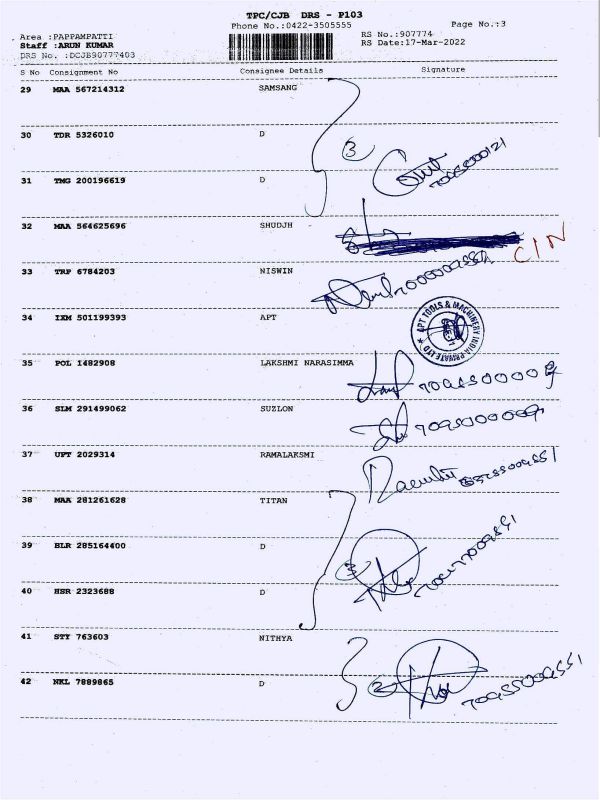 TPC/CJB DRS - P103
Phone No.:0422-3505555 Page No.:3
Area :PAPPAMPATTI RS No.:907774
Staff :ARUN KUMAR RS Date:17-Mar-2022
DRS No. :DCJB90777403
S No Consignment No Consignee Details Signature
29 MAA 567214312 SAMSANG
30 TDR 5326010 D
3
31 TMG 200196619 D
32 MAA 564625696 SHUDJH
CIN
33 TRP 6784203 NISWIN
34 IXM 501199393 APT
APT TOOLS & MACHINERY INDIA PRIVATE LTD
35 POL 1482908 LAKSHMI NARASIMMA
36 SLM 291499062 SUZLON
37 UPT 2029314 RAMALAKSMI
38 MAA 281261628 TITAN
39 BLR 285164400 D
3
40 HSR 2323688 D
41 STY 763603 NITHYA
42 NKL 7889865 D
2